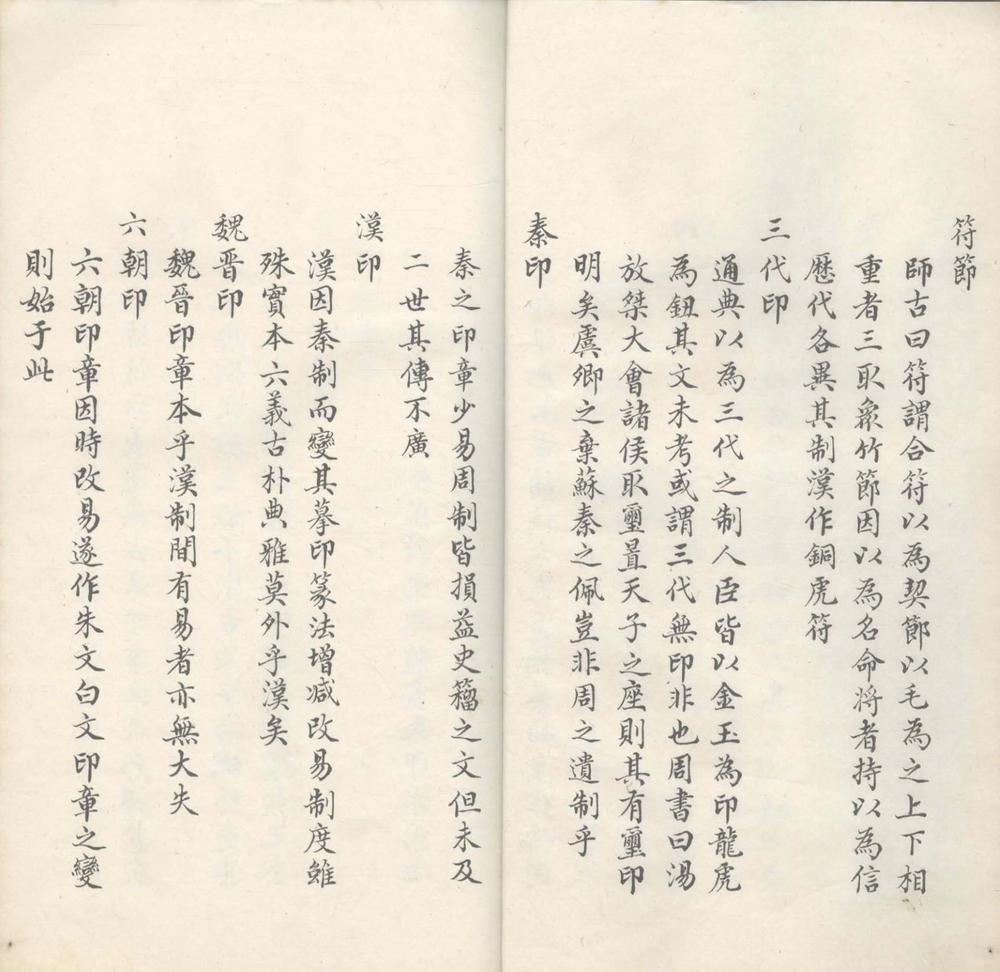 符節
師古曰符謂合符以為契節以毛為之上下相
重者三取象竹節因以為名命将者持以為信
歷代各異其制漢作銅虎符
三代印
通典以為三代之制人臣皆以金玉為印龍虎
為鈕其文未考或謂三代無印非也周書曰湯
放桀大會諸侯取璽置天子之座則其有璽印
明矣虞卿之棄蘇秦之佩豈非周之遺制乎
秦印
秦之印章少易周制皆損益史籀之文但未及
二世其傳不廣
漢印
漢因秦制而變其摹印篆法增減改易制度雖
殊實本六義古朴典雅莫外乎漢矣
魏晋印
魏晋印章本乎漢制間有易者亦無大失
六朝印
六朝印章因時改易遂作朱文白文印章之變
則始于此